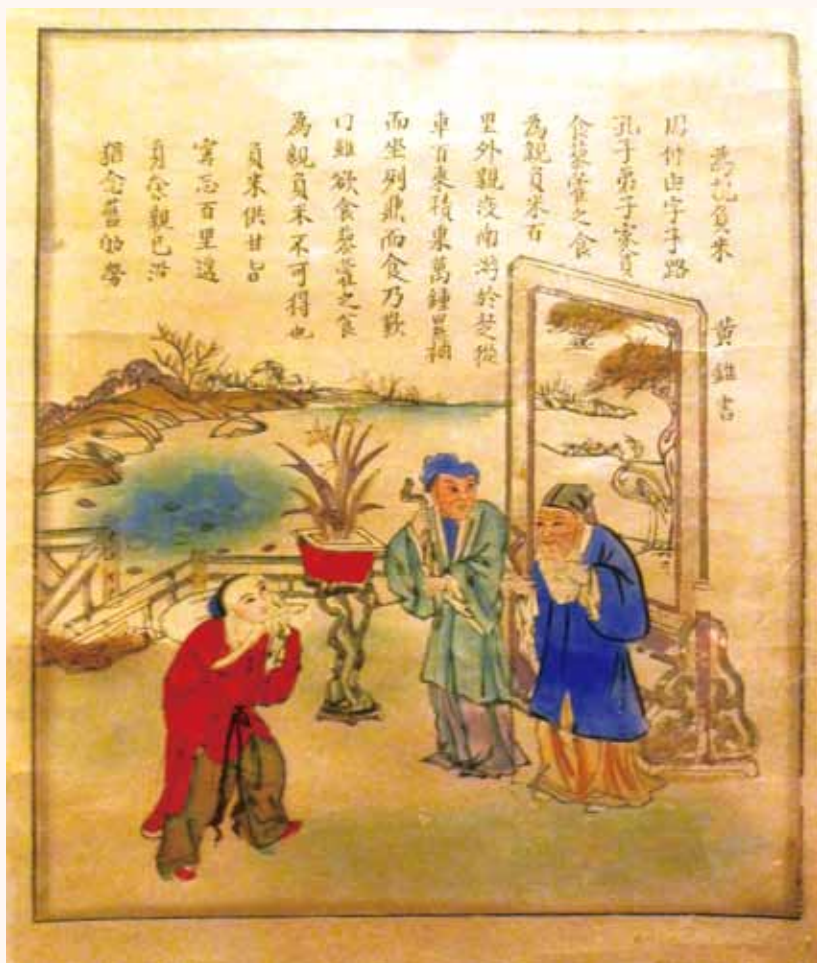 為親負米 黃 書
周仲由字子路
孔子弟子家貧
食藜藿之食
為親負米百
里外親沒南游於楚從
車百乘積粟萬鍾累裀
而坐列鼎而食乃歎
曰雖欲食藜藿之食
為親負米不可得也
負米供甘旨
寧忘百里遙
身榮親已沒
猶念舊劬勞